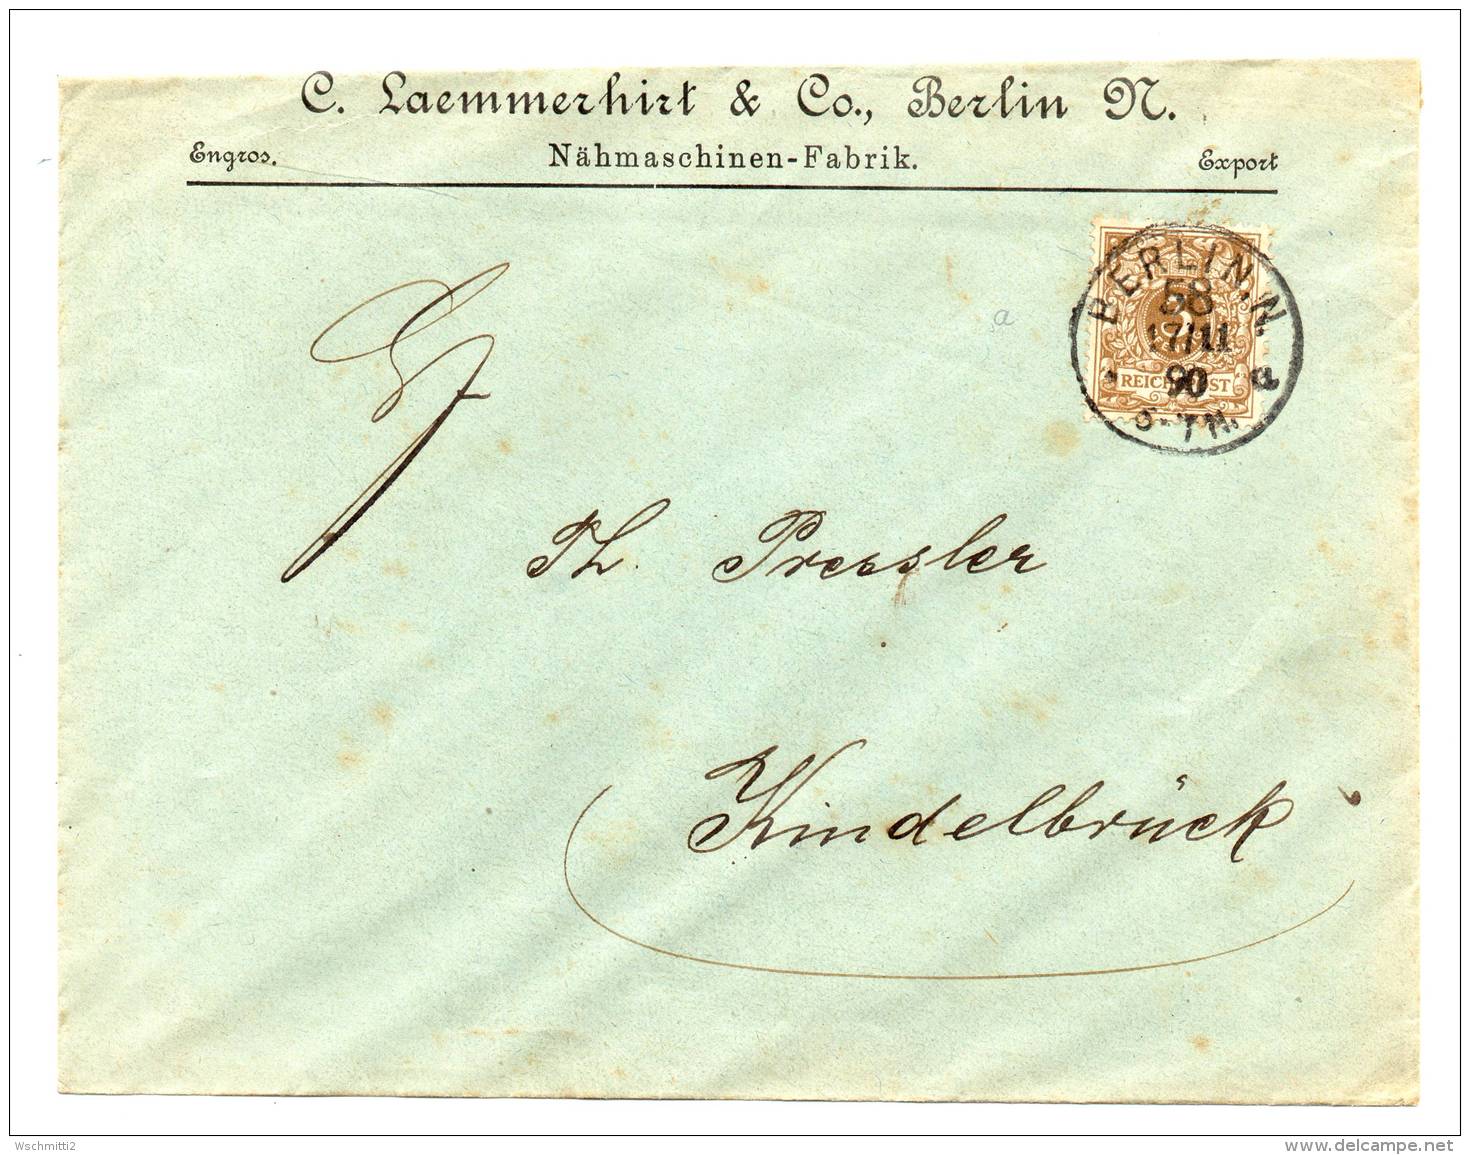 C. Laemmerhirt & Co., Berlin N.
Engros. Nähmaschinen-Fabrik. Export
BERLIN, N.
58
17/11
90
5-7N.
a
3
REICHSPOST
a
Th. Pressler
Kindelbrück
Wschmitti2
www.delcampe.net